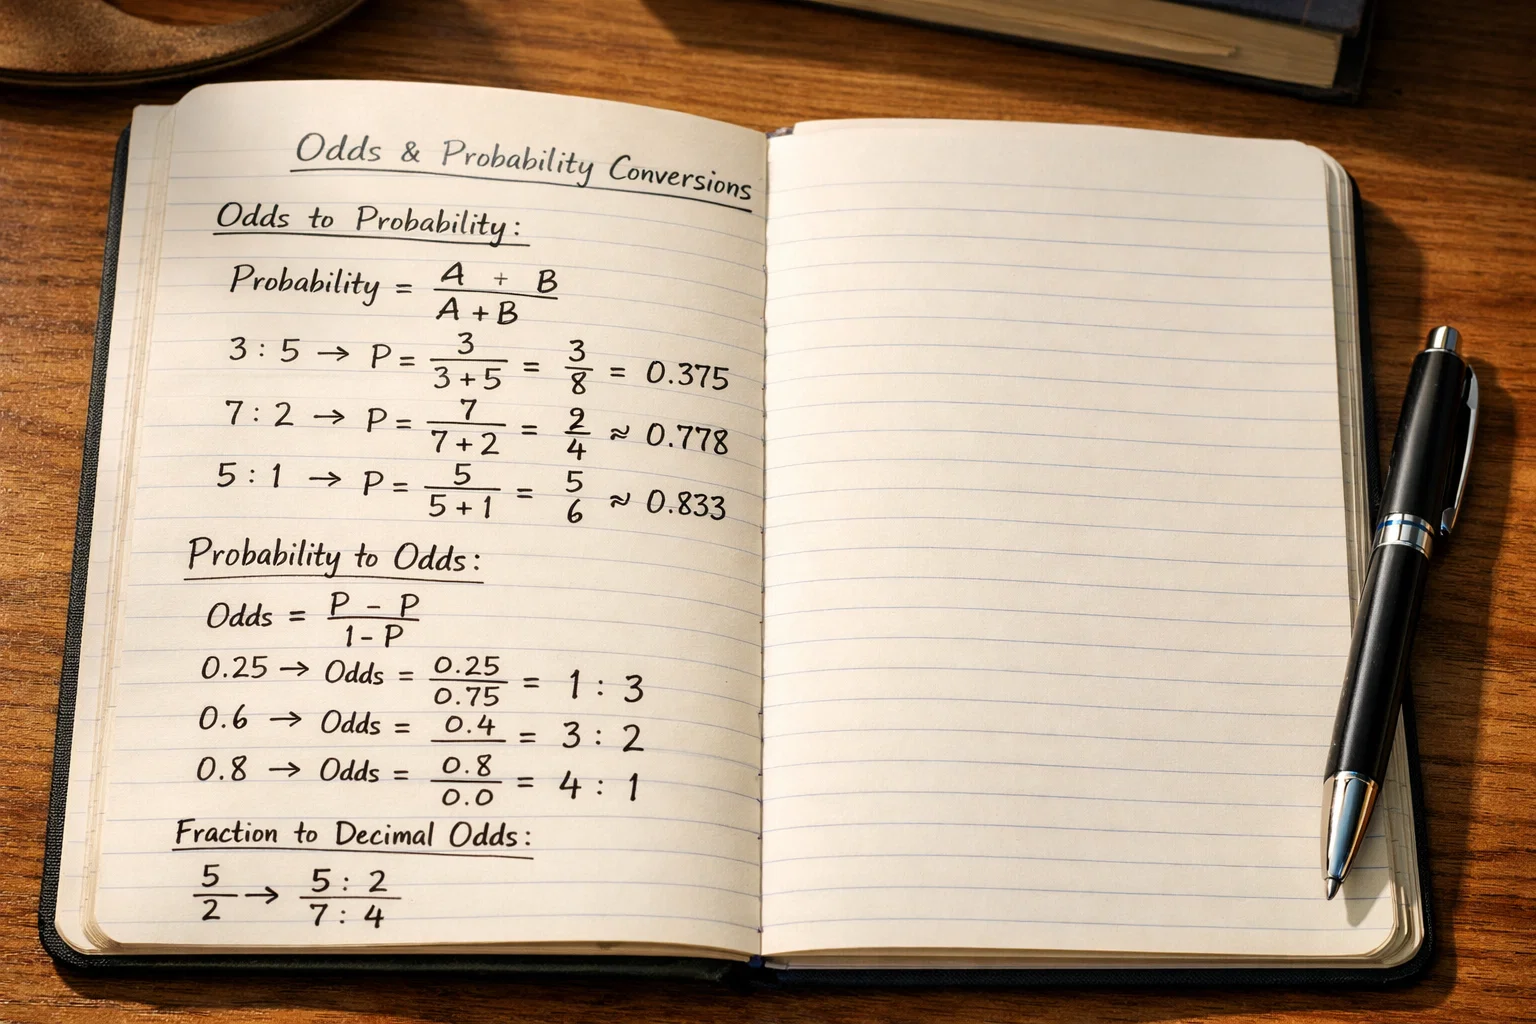 Odds & Probability Conversions
Odds to Probability:
Probability = A + B / A + B
3 : 5 → P = 3 / 3 + 5 = 3 / 8 = 0.375
7 : 2 → P = 7 / 7 + 2 = 2 / 4 ≈ 0.778
5 : 1 → P = 5 / 5 + 1 = 5 6 ≈ 0.833
Probability to Odds:
Odds = P - P / 1 - P
0.25 → Odds = 0.25 / 0.75 = 1 : 3
0.6 → Odds = 0.4 / = 3 : 2
0.8 → Odds = 0.8 / 0.0 = 4 : 1
Fraction to Decimal Odds:
5 / 2 → 5 : 2 / 7 : 4